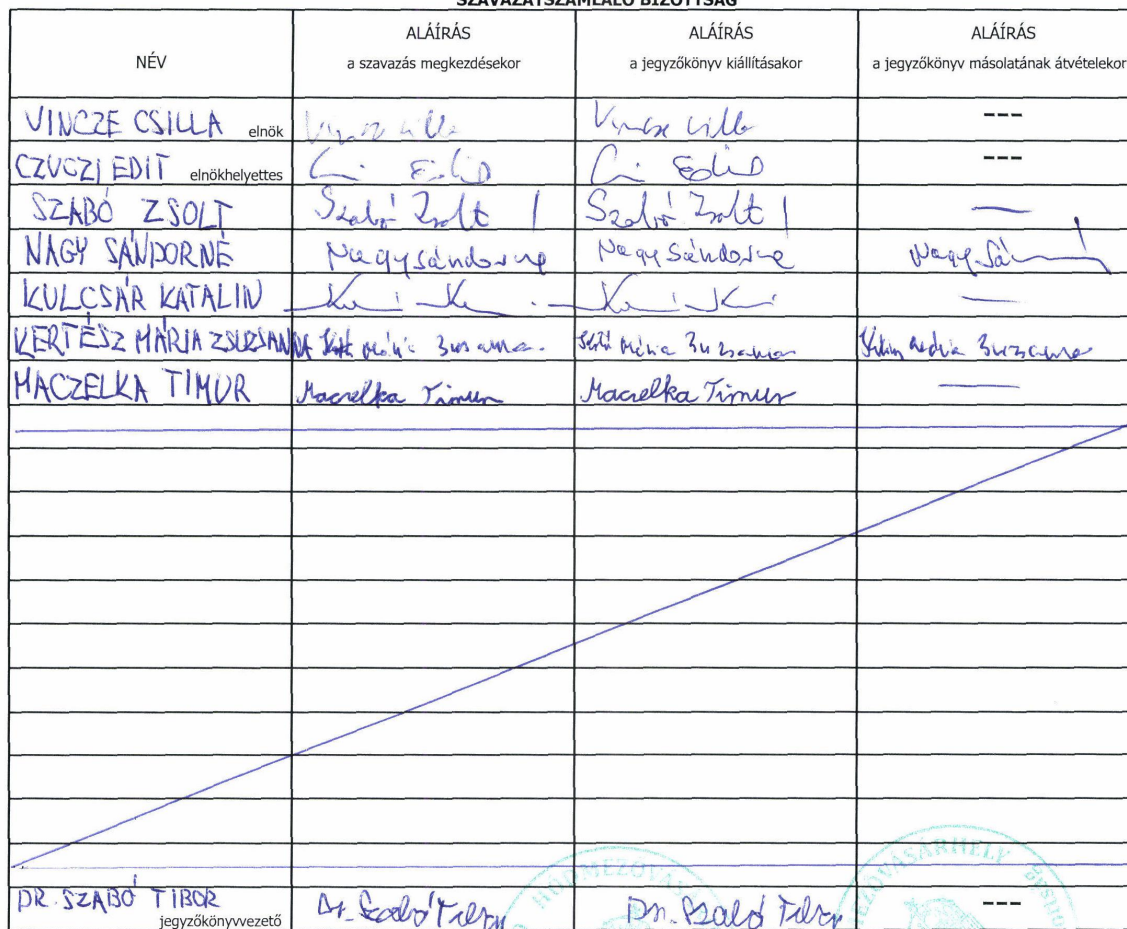 SZAVAZATSZÁMLÁLÓ BIZOTTSÁG
NÉV
ALÁÍRÁS
a szavazás megkezdésekor
ALÁÍRÁS
a jegyzőkönyv kiállításakor
ALÁÍRÁS
a jegyzőkönyv másolatának átvételekor
VINCZE CSILLA elnök ---
CZUCZI EDIT elnökhelyettes Edit Edit ---
SZABÓ ZSOLT Szabó Zsolt Szabó Zsolt —
NAGY SÁNDORNÉ Nagy Sándorné Nagy Sándorné Nagy
KULCSÁR KATALIN —
KERTÉSZ MÁRIA ZSUZSANNA Mária Zsuzsanna Mária Zsuzsanna Mária Zsuzsanna
MACZELKA TIMUR Maczelka Timur Maczelka Timur —
DR. SZABÓ TIBOR jegyzőkönyvvezető Dr. Szabó Tibor Dr. Szabó Tibor ---